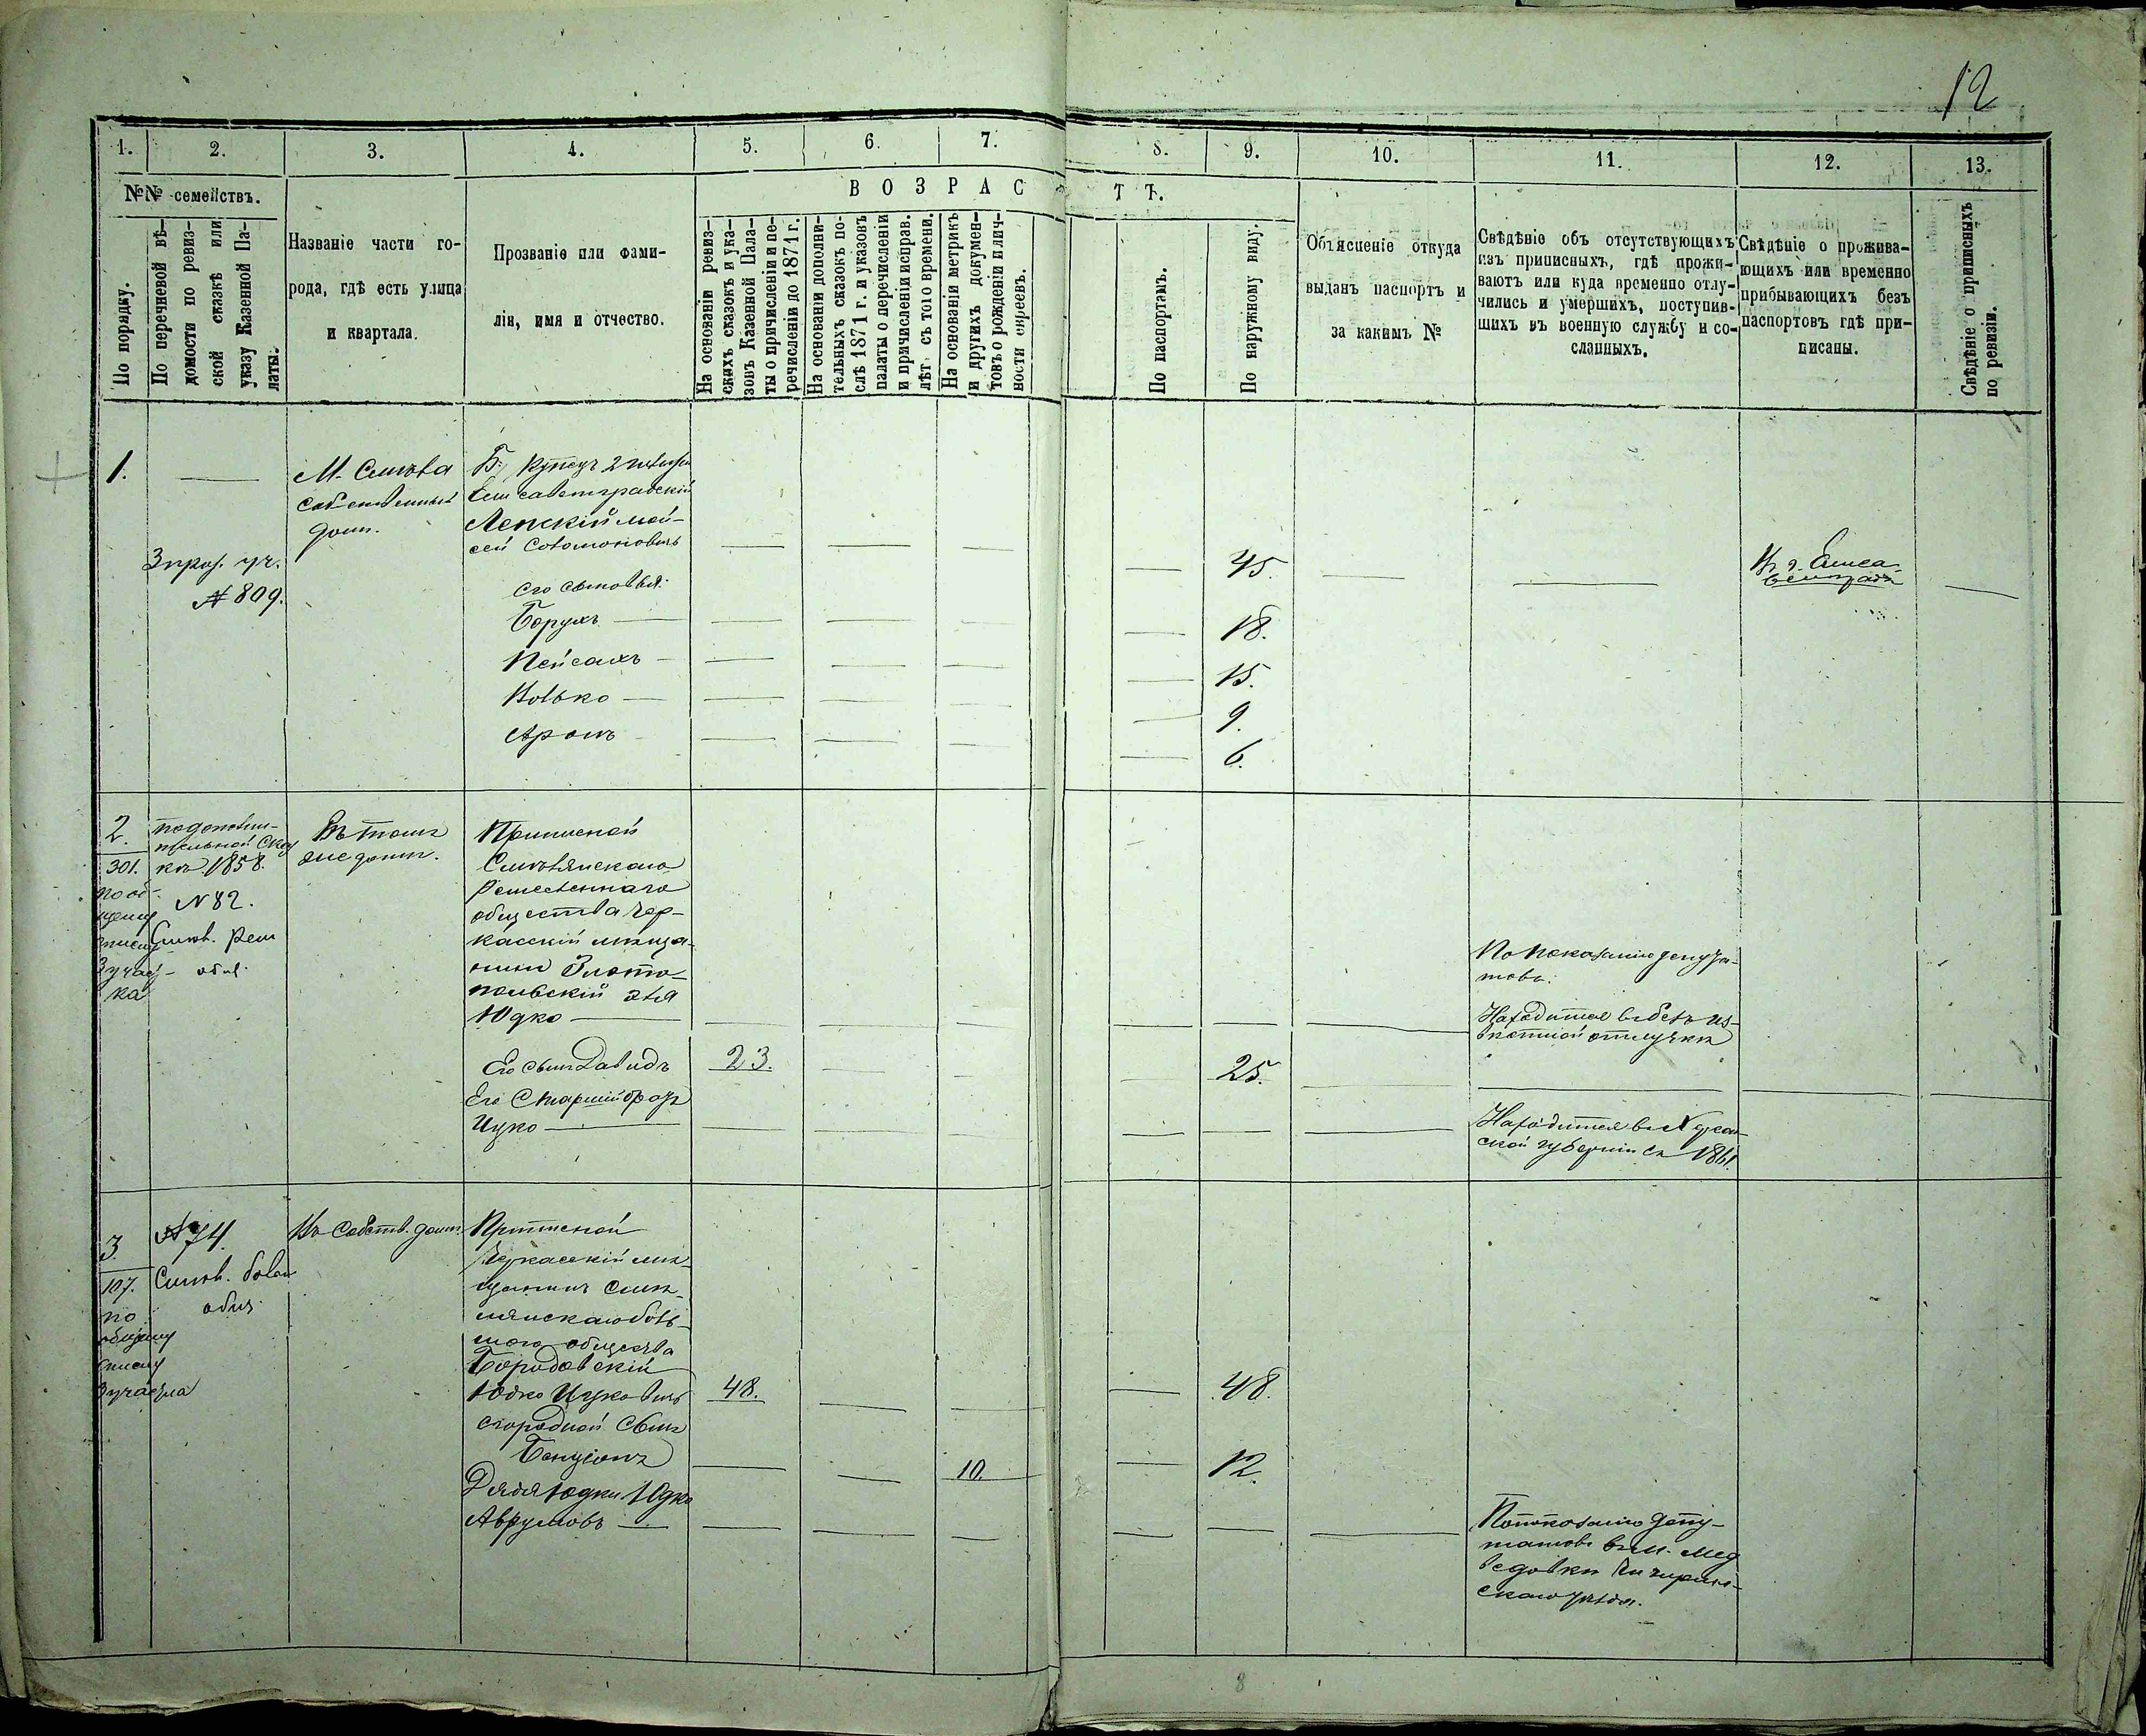 12
1.
2.
3.
4.
5.
6.
7.
8.
9.
10.
11.
12.
13.
№№ семействъ.
ВОЗРАС
ТЪ.
По порядку.
По перечневой вѣ-
домости по ревиз-
ской сказкѣ или
указу Казенной Па-
латы.
Названіе части го-
рода, гдѣ есть улица
и квартала.
Прозваніе или фами-
лія, имя и отчество.
На основаніи ревиз-
скихъ сказокъ и ука-
зовъ Казенной Пала-
ты о причисленіи и пе-
речисленіи до 1871 г.
На основаніи дополни-
тельныхъ сказокъ по-
слѣ 1871 г. и указовъ
палаты о перечисленіи
и причисленіи исправ.
лѣт съ того времени.
На основаніи метрикъ
и другихъ докумен-
товъ о рожденіи и лич-
ности евреевъ.
По паспортамъ.
По наружному виду.
Объясненіе откуда
выданъ паспортъ и
за какимъ №
Свѣдѣніе объ отсутствующихъ
изъ приписныхъ, гдѣ прожи-
ваютъ или куда временно отлу-
чились и умершихъ, поступив-
шихъ въ военную службу и со-
сланныхъ.
Свѣдѣніе о прожива-
ющихъ или временно
прибывающихъ безъ
паспортовъ гдѣ при-
писаны.
Свѣдѣніе о приписныхъ
по ревизіи.
1.
№ 809.
М. Смѣла
собственный
домъ.
Б. Купецъ 2 гильдіи
Елисаветградскій
Лепскій Мой-
сей Соломоновичъ
45.
Въ г. Елиса-
ветградѣ
Его сыновья:
Борухъ
18.
Пейсахъ
15.
Волько
9.
Аронъ
6.
2.
301.
по об-
щему
списку
3 участ-
ка
По дополни-
тельной сказ
кѣ 1858.
№ 82.
Смѣл. рем
общ.
Въ томъ
же домѣ.
Приписной
Смѣлянскаго
Ремесленнаго
общества Чер-
касскій мѣща-
нинъ Злото-
польскій Эля
Юдко
По показанію депута-
товъ.
Находится въ безъиз-
вѣстной отлучкѣ
Его сынъ Давидъ
23.
25.
Его Старшій братъ
Ицко
Находится въ
ской губерніи съ 1861.
3.
107.
по
общему
списку
3 участка
№ 74.
Смѣл. болш
общ.
Въ собств. домѣ.
Приписной
Черкасскій мѣ-
щанинъ Смѣ-
лянскаго боль-
шого общества
Бородовскій
Юдко Ицковичъ
48.
48.
его родной сынъ
Бенціонъ
10.
12.
Дядя Юдки Юдко
Аврумовъ
По показанію депу-
татовъ въ м. Мед
ведовкѣ Чигирин-
скаго уѣзда.
8